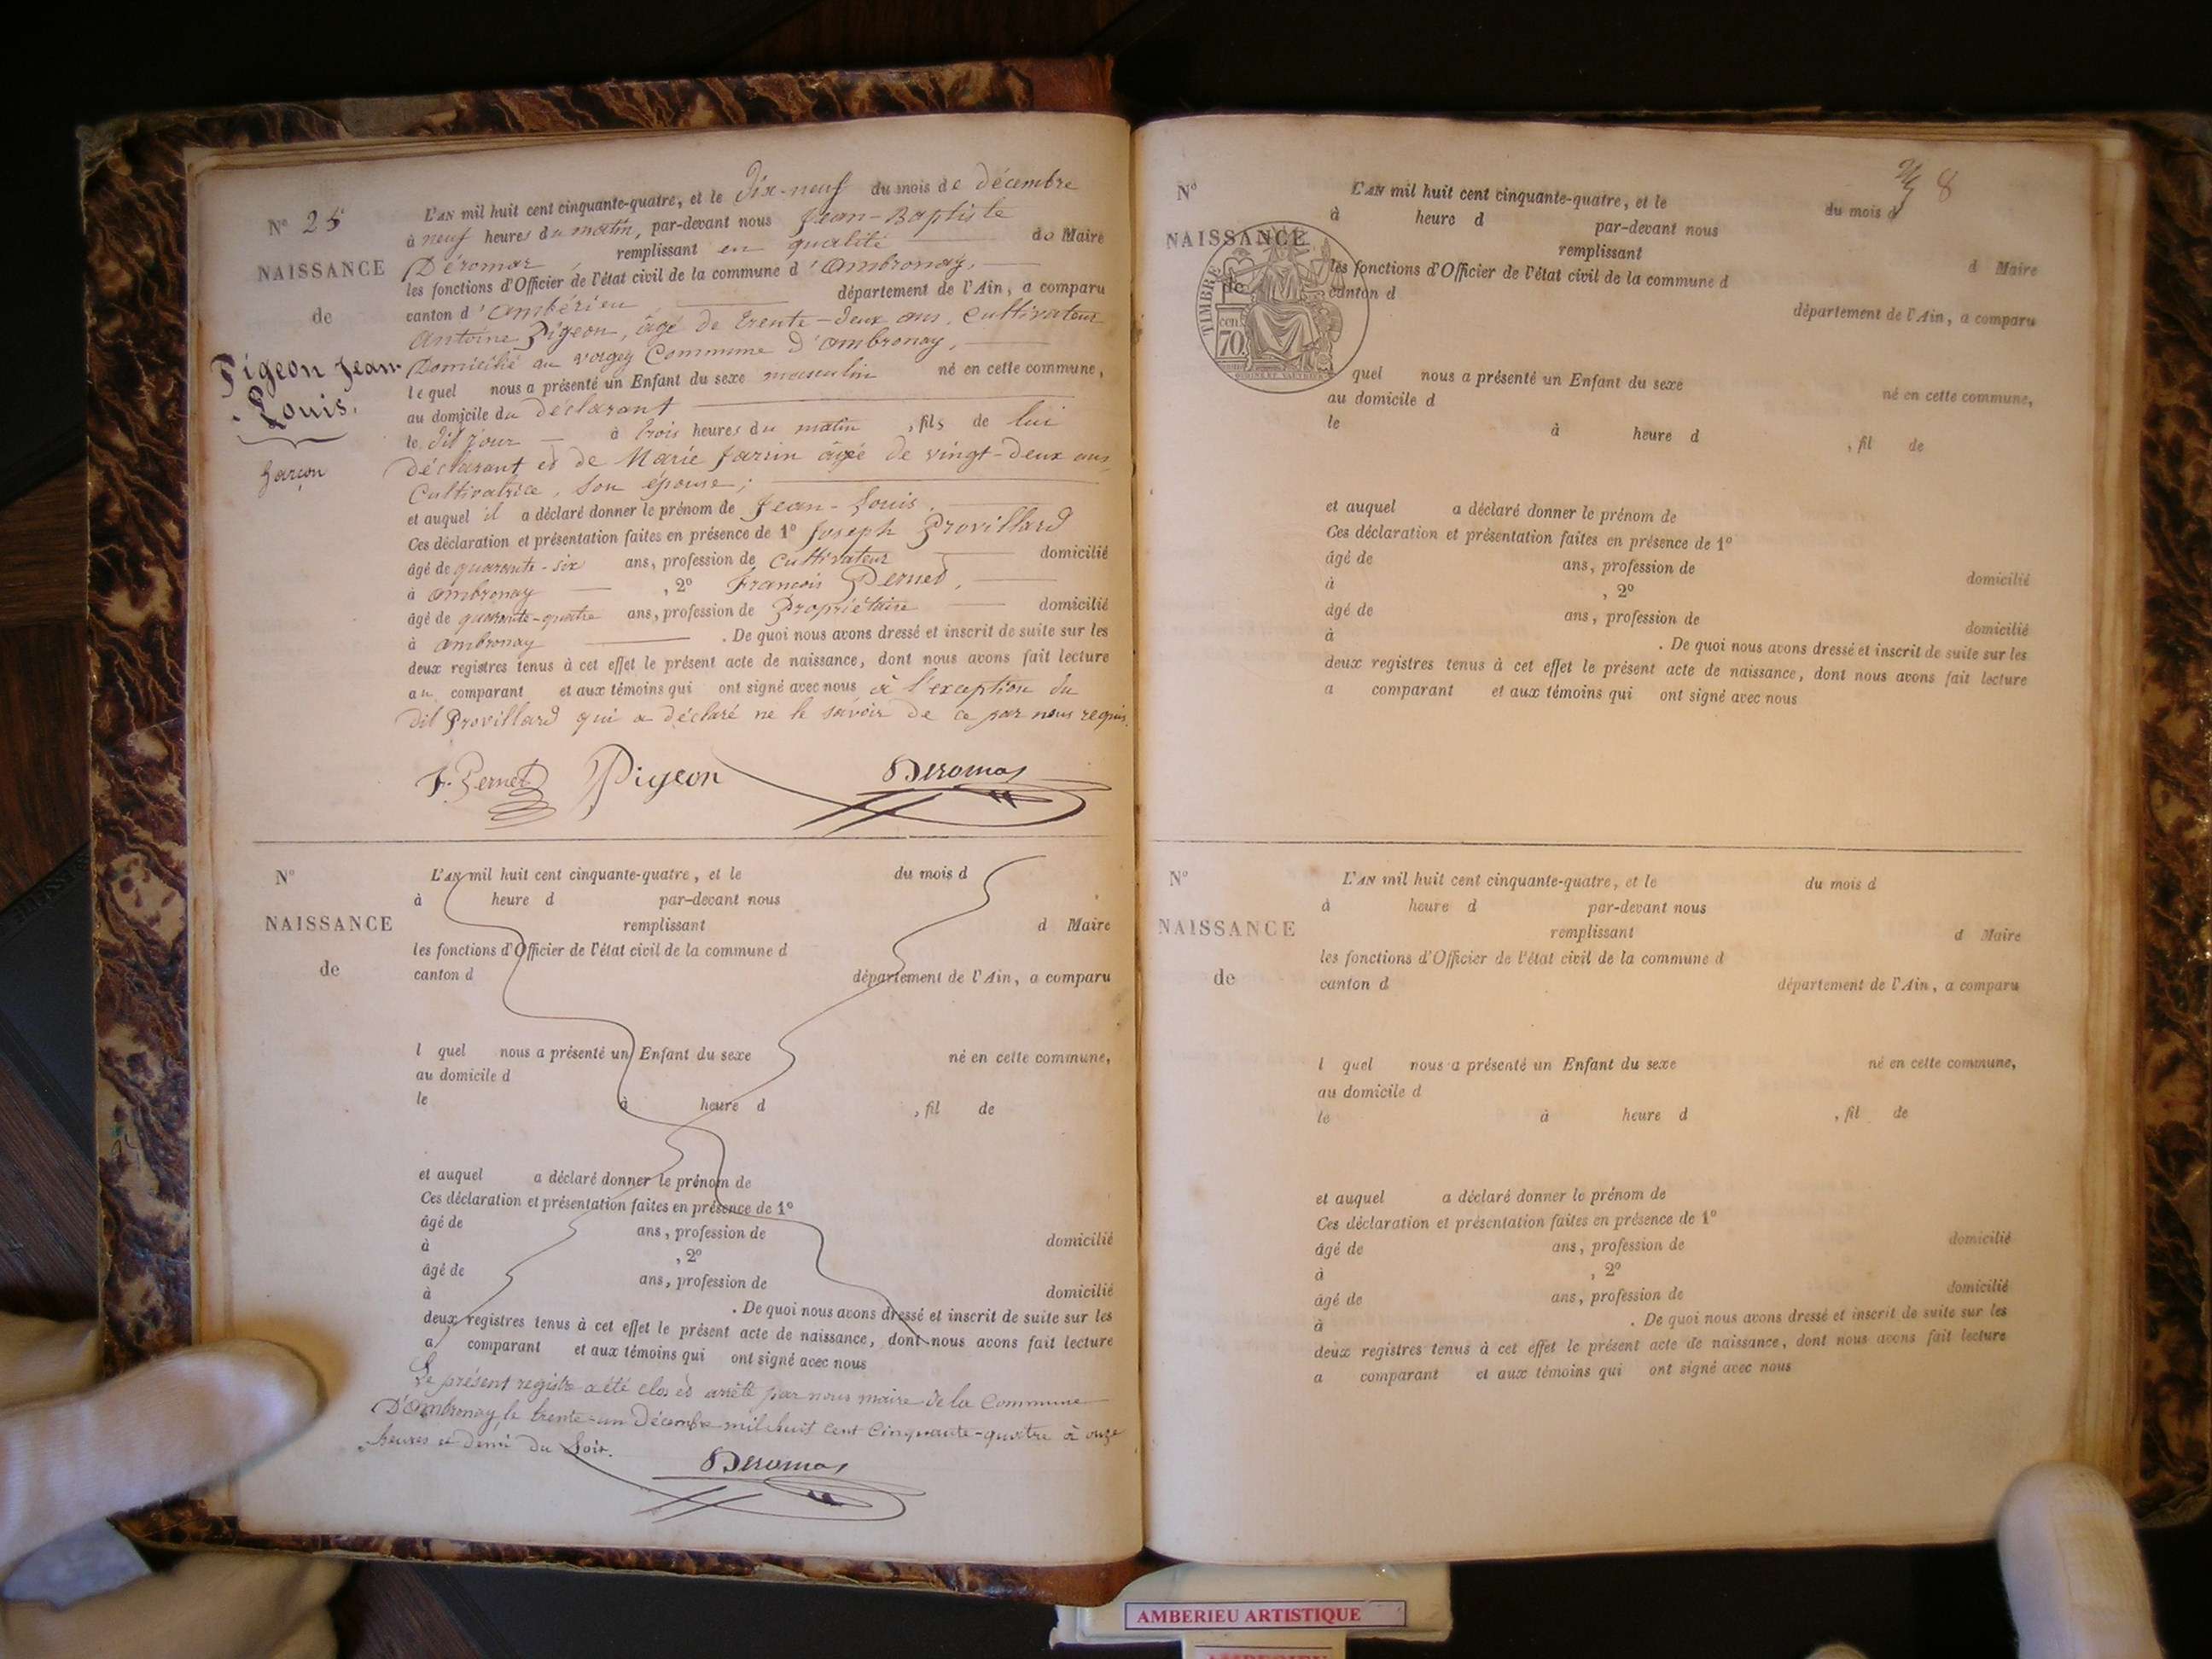 N° 25
NAISSANCE
de
Pigeon Jean-
-Louis.
garçon
L'AN mil huit cent cinquante-quatre, et le dix-neuf du mois de décembre
à neuf heures du matin, par-devant nous Jean-Baptiste
Déromas, remplissant en qualité de Maire
les fonctions d'Officier de l'état civil de la commune d'ambronay,
canton d'ambérieu département de l'Ain, a comparu
antoine Pigeon, âgé de trente-deux ans, Cultivateur
Domicilié au Commune d'ambronay,
lequel nous a présenté un Enfant du sexe masculin né en cette commune,
au domicile du déclarant
le dit jour à trois heures du matin, fils de lui
déclarant et de Marie farrin âgée de vingt-deux ans,
Cultivatrice, son épouse;
et auquel il a déclaré donner le prénom de Jean-Louis.
Ces déclaration et présentation faites en présence de 1° Joseph Provillard
âgé de quarante-six ans, profession de Cultivateur domicilié
à ambronay, 2° François Pernet,
âgé de quarante-quatre ans, profession de Propriétaire domicilié
à ambronay. De quoi nous avons dressé et inscrit de suite sur les
deux registres tenus à cet effet le présent acte de naissance, dont nous avons fait lecture
au comparant et aux témoins qui ont signé avec nous à l'exception du
dit Provillard qui a déclaré ne le savoir de ce par nous requis.
F. Pernet Pigeon Deromas
N°
NAISSANCE
de
L'AN mil huit cent cinquante-quatre, et le du mois d
à heure d par-devant nous
remplissant d Maire
les fonctions d'Officier de l'état civil de la commune d
canton d département de l'Ain, a comparu
l quel nous a présenté un Enfant du sexe né en cette commune,
au domicile d
le à heure d , fil de
et auquel a déclaré donner le prénom de
Ces déclaration et présentation faites en présence de 1°
âgé de ans, profession de domicilié
à , 2°
âgé de ans, profession de domicilié
à . De quoi nous avons dressé et inscrit de suite sur les
deux registres tenus à cet effet le présent acte de naissance, dont nous avons fait lecture
a comparant et aux témoins qui ont signé avec nous
Le présent registre a été clos et arrêté par nous maire de la Commune
D'ambronay, le trente-un Décembre mil huit cent cinquante-quatre à onze
heures et demi du Soir.
Deromas
8
N°
NAISSANCE
de
TIMBRE
cen.
70.
L'AN mil huit cent cinquante-quatre, et le du mois d
à heure d par-devant nous
remplissant d Maire
les fonctions d'Officier de l'état civil de la commune d
canton d département de l'Ain, a comparu
quel nous a présenté un Enfant du sexe né en cette commune,
au domicile d
le à heure d , fil de
et auquel a déclaré donner le prénom de
Ces déclaration et présentation faites en présence de 1°
âgé de ans, profession de domicilié
à , 2°
âgé de ans, profession de domicilié
à . De quoi nous avons dressé et inscrit de suite sur les
deux registres tenus à cet effet le présent acte de naissance, dont nous avons fait lecture
a comparant et aux témoins qui ont signé avec nous
N°
NAISSANCE
de
L'AN mil huit cent cinquante-quatre, et le du mois d
à heure d par-devant nous
remplissant d Maire
les fonctions d'Officier de l'état civil de la commune d
canton d département de l'Ain, a comparu
l quel nous a présenté un Enfant du sexe né en cette commune,
au domicile d
le à heure d , fil de
et auquel a déclaré donner le prénom de
Ces déclaration et présentation faites en présence de 1°
âgé de ans, profession de domicilié
à , 2°
âgé de ans, profession de domicilié
à . De quoi nous avons dressé et inscrit de suite sur les
deux registres tenus à cet effet le présent acte de naissance, dont nous avons fait lecture
a comparant et aux témoins qui ont signé avec nous
AMBERIEU ARTISTIQUE